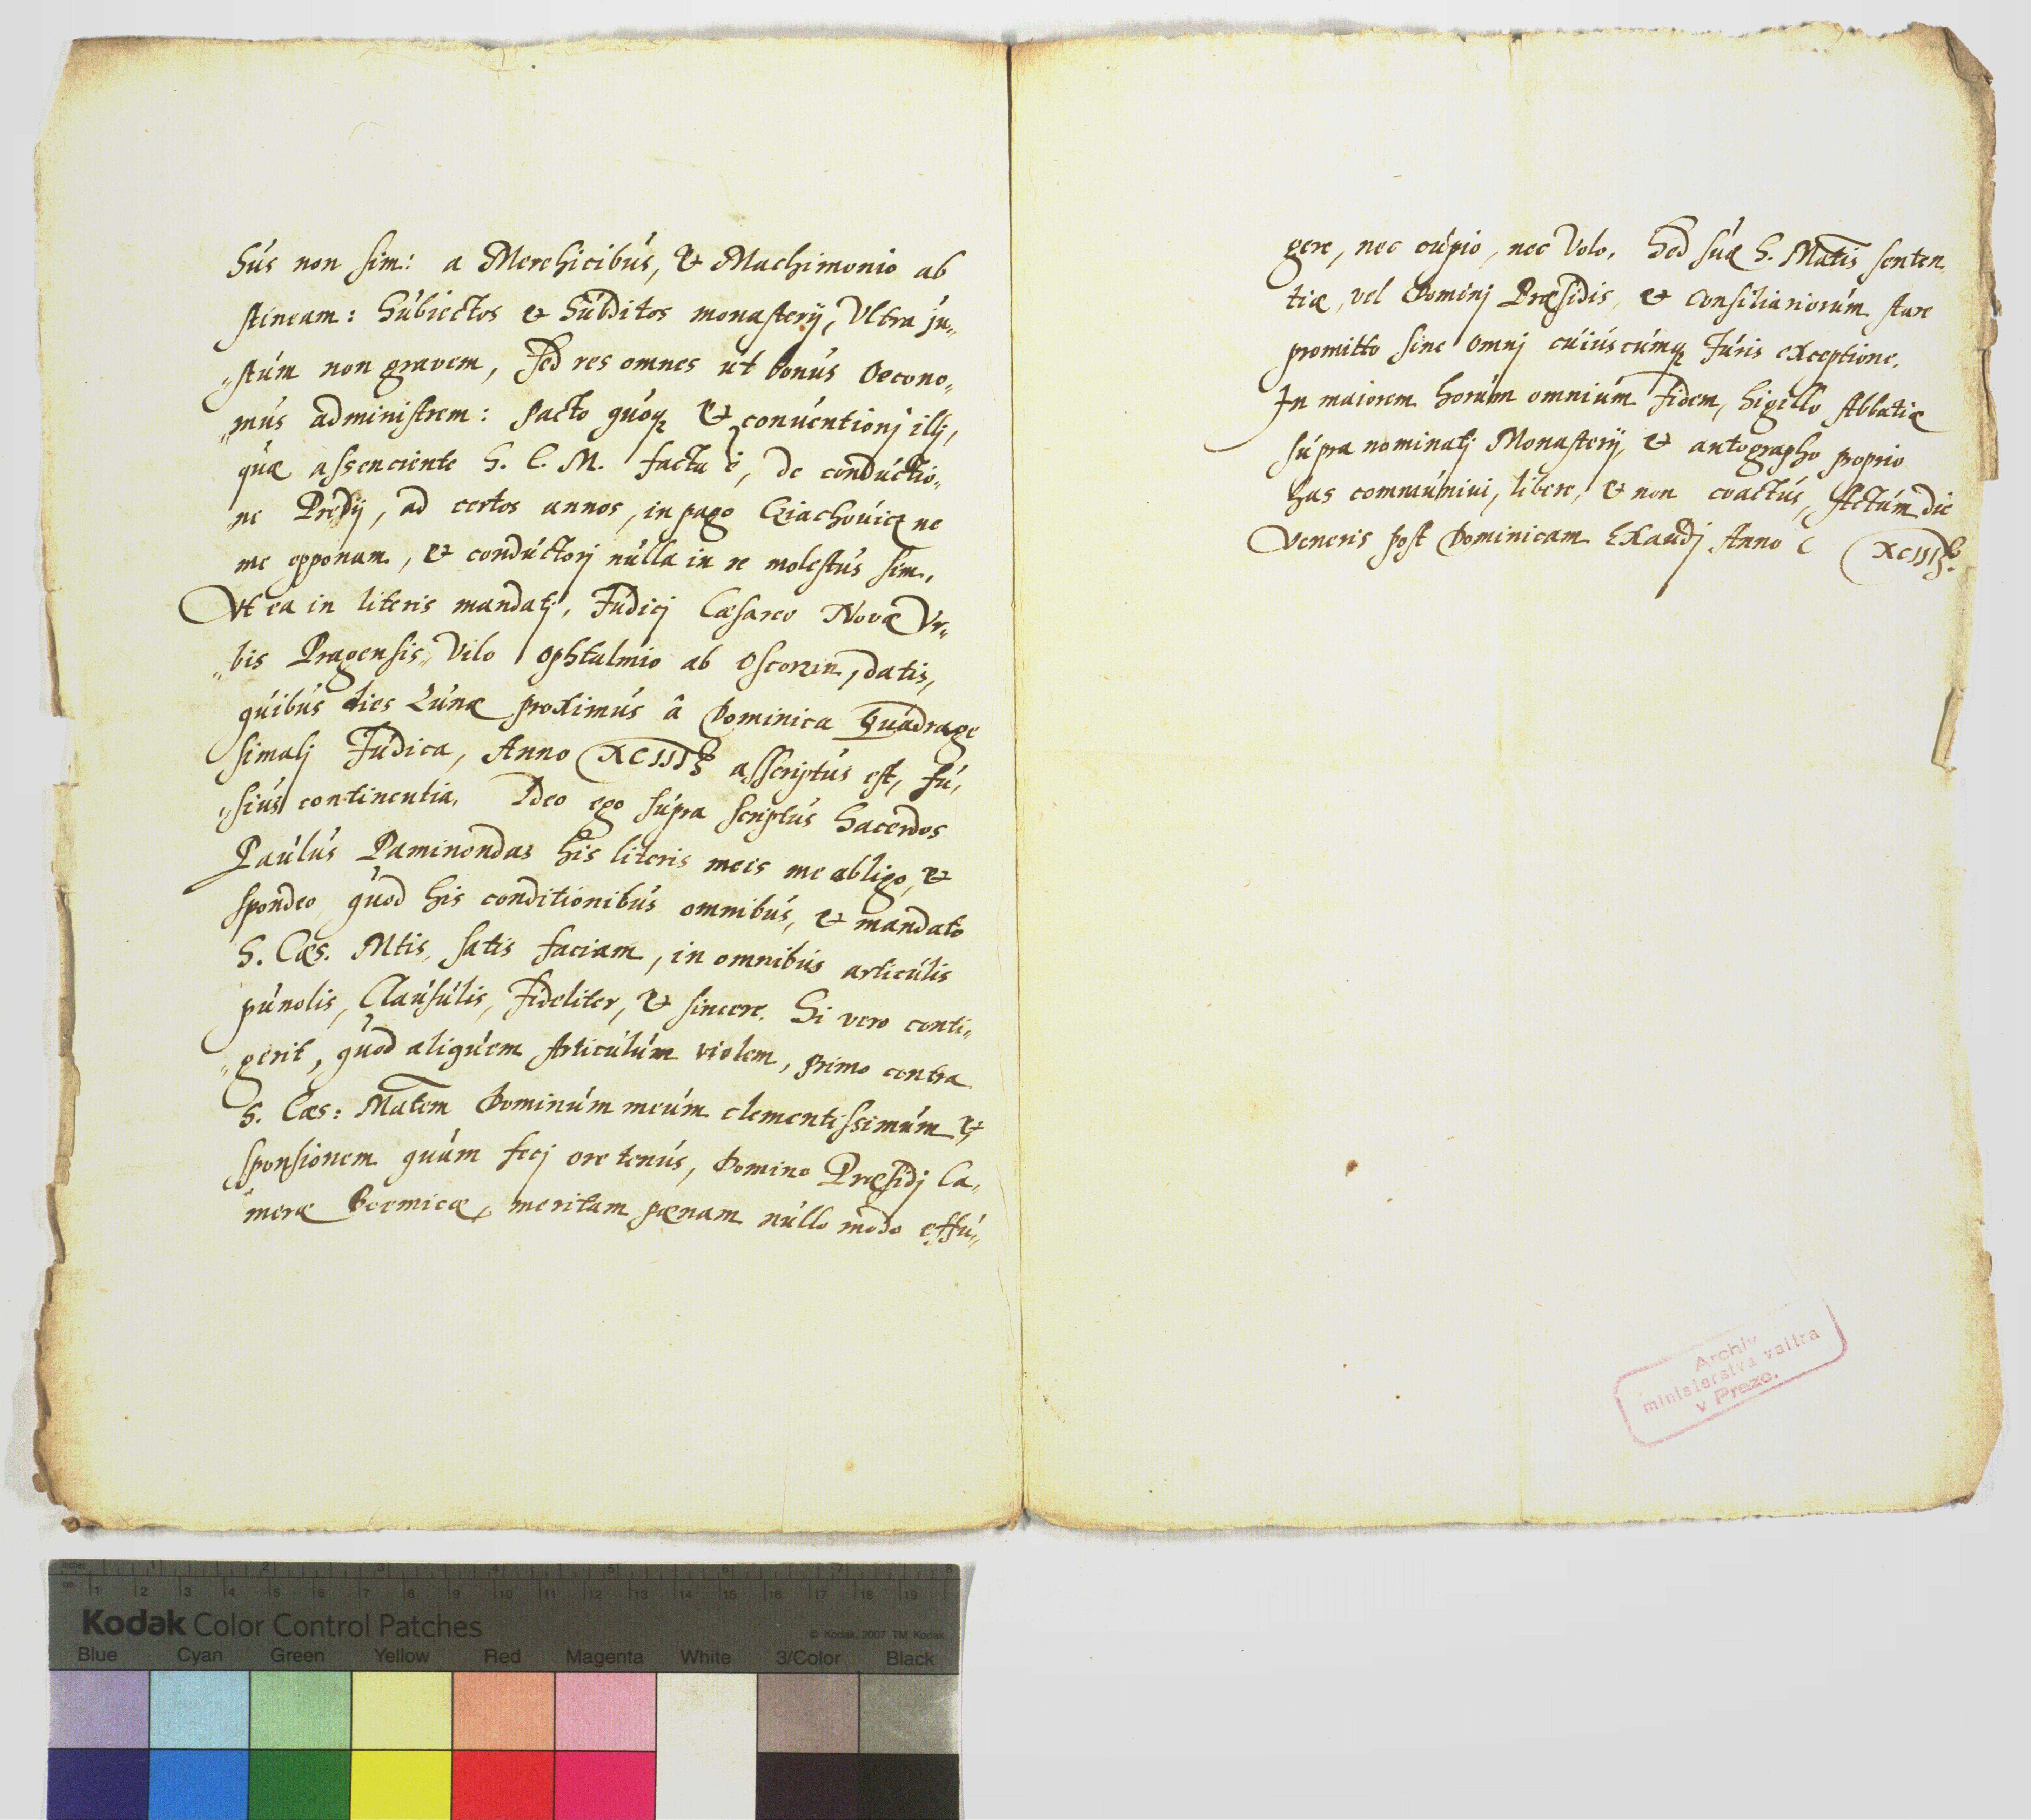 Sus non sim: a Merehicibus, & Machimonio ab
stineam: Subiectos & Subditos monasterij, Vltra ju„
„stum non gravem, sed res omnes ut bonus Oecono„
„mus administrem: pacto quoq & conventionj illj,
quæ assenciente S. C. M. facta ē, de conductio„
ne Predij, ad certos annos, in pago ne
me opponam, & conductorj nulla in re molestus sim,
Vt ea in literis mandatj, Judicj Cæsareo Novæ Vr„
„bis Pragensis, Vilo Ophtalmio ab Oscorzin, datis,
quibus dies Lunæ proximus â Dominica Quadrage
simalj Judica, Anno XCIIII asscriptus est, fu„
„sius continentia, Ideo ego supra scriptus Sacerdos
Paulus Paminondas his literis meis me obligo, &
spondeo quod his conditionibus omnibus, & mandato
S. Cæs. Mtis, satis faciam, in omnibus articulis
punctis, Clausulis, Fideliter, & sincere. Si vero conti„
„gerit, quod aliquem Articulum violem, primo contra
S. Cæs: Matem Dominum meum clementissimum &
sponsionem quam fecj ore tenus, Domino Præsidj Ca„
„meræ Boemicæ, meritam pænam nullo modo effu„
gere, nec cupio, nec Volo, Sed suæ S. Matis senten
tiæ, vel Dominj Præsidis, & Consiliariorum stare
promitto sine omnj cuiuscumq Juris exceptione.
In maiorem horum omnium Fidem, Sigillo Abbatiæ
supra nominatj Monasterij, & autographo proprio
has communivi, libere, & non coactus, Actum die
Veneris post Dominicam Exaudj Anno XCIIII
Archiv
ministerstva vnitra
v Praze.
Kodak Color Control Patches
© Kodak, 2007 TM: Kodak
Blue Cyan Green Yellow Red Magenta White 3/Color Black